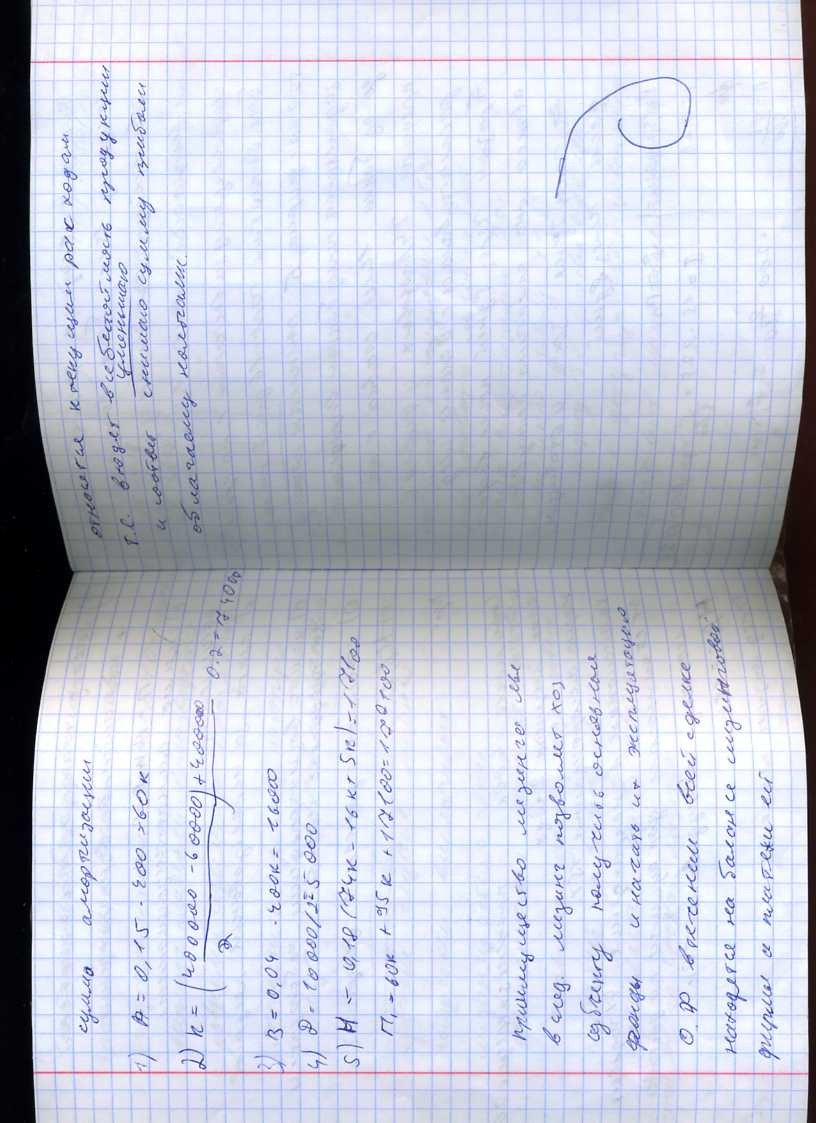 сумма амортизации
1) A = 0,15 · 400 = 60к
2) К = (400000 - 60000) + 400000 / 2 · 0.2 = 74000
3) В = 0,04 · 400к = 16000
4) Д = 10000/2 = 5000
5) Н = 0,18 (74к - 16к + 5к) = 17100
П₁ = 60к + 95к + 17100 = 172100
преимущество лизинга
в след. лизинг позволяет хоз
субъекту получить основные
фонды и начать их эксплуатацию
О.Ф в течении всей сделке
находятся на балансе лизинговой
фирмы а платежи ей
относятся к текущим расходам
т.е. входят в себестоимость продукции
уменьшаю
и соответ снимаю сумму прибыли
облагаему налогами.